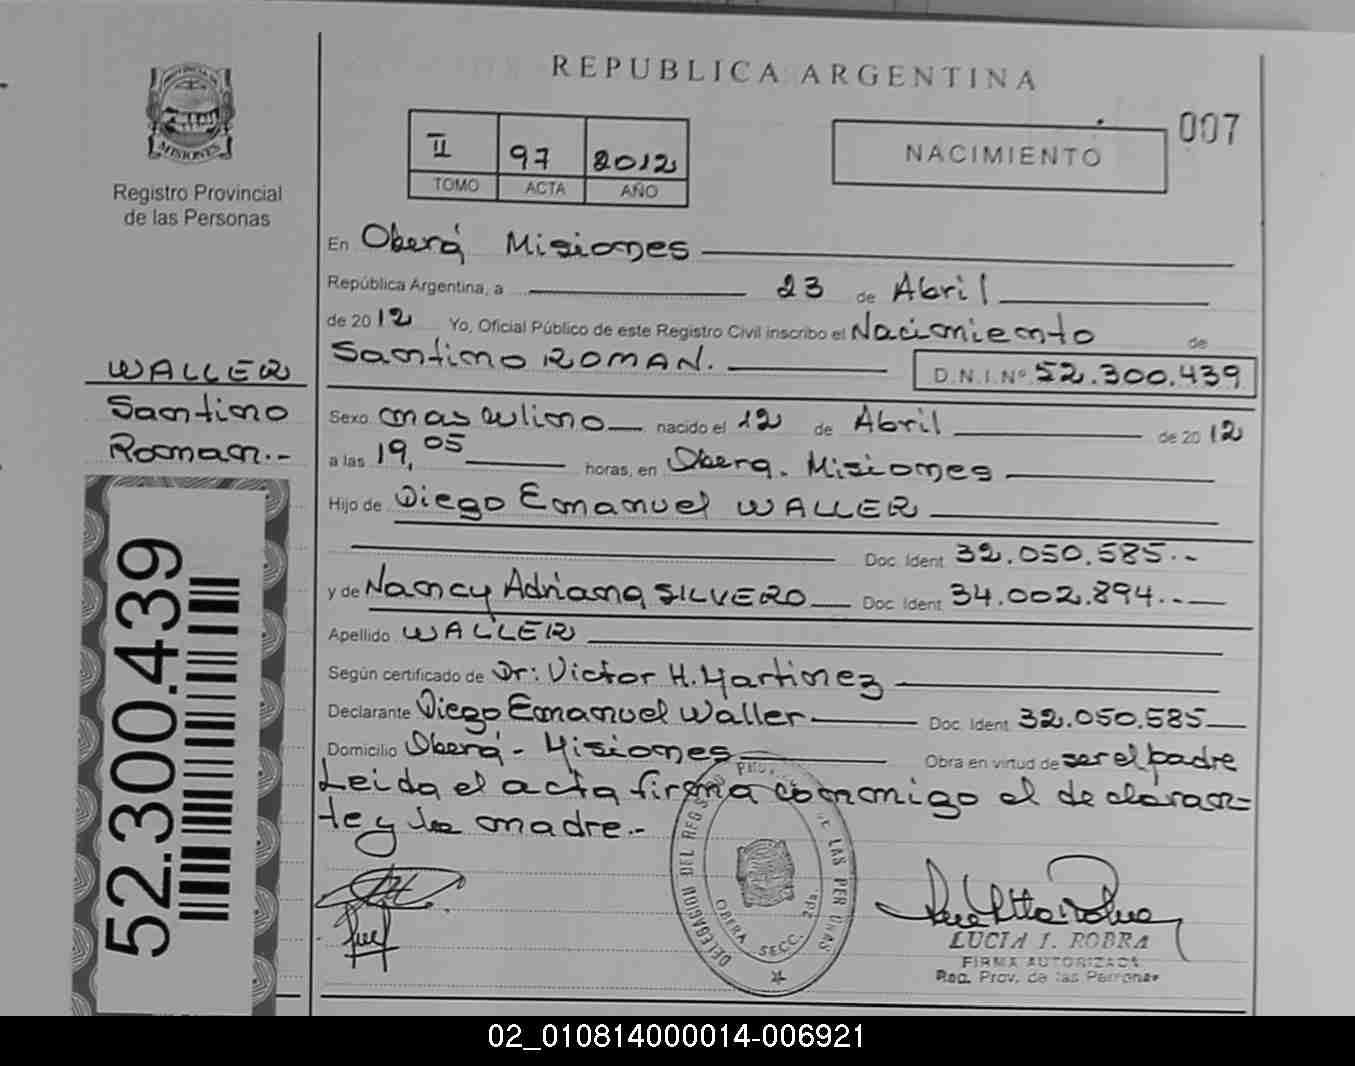 REPUBLICA ARGENTINA
007
II 97 2012
TOMO ACTA AÑO
NACIMIENTO
MISIONES
Registro Provincial
de las Personas
En Oberá Misiones
República Argentina, a 23 de Abril
de 2012 Yo, Oficial Público de este Registro Civil inscribo el Nacimiento de
Santino ROMAN.
D.N.I.Nº 52.300.439
WALLER
Santino
Roman.-
Sexo masculino nacido el 12 de Abril de 2012
a las 19,05 horas, en Obera. Misiones
Hijo de Diego Emanuel WALLER
Doc. Ident 32.050.585.-
y de Nancy Adriana SILVERO Doc. Ident 34.002.894.-
Apellido WALLER
Según certificado de Dr: Victor H. Martinez
Declarante Diego Emanuel Waller Doc. Ident 32.050.585
Domicilio Oberá - Misiones Obra en virtud de ser el padre
Leida el acta firma conmigo el declaran=
te y la madre.-
52.300.439
DELEGACION DEL REG PROV DE LAS PER
OBERA SECC. 2da.
LUCIA I. ROBRA
FIRMA AUTORIZADA
Reg. Prov. de las Personas
02_010814000014-006921